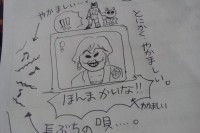 やかましい…
とにかくやかましい。
!!!
ほんまかいな!!
やかましい
長ぶちの唄…。